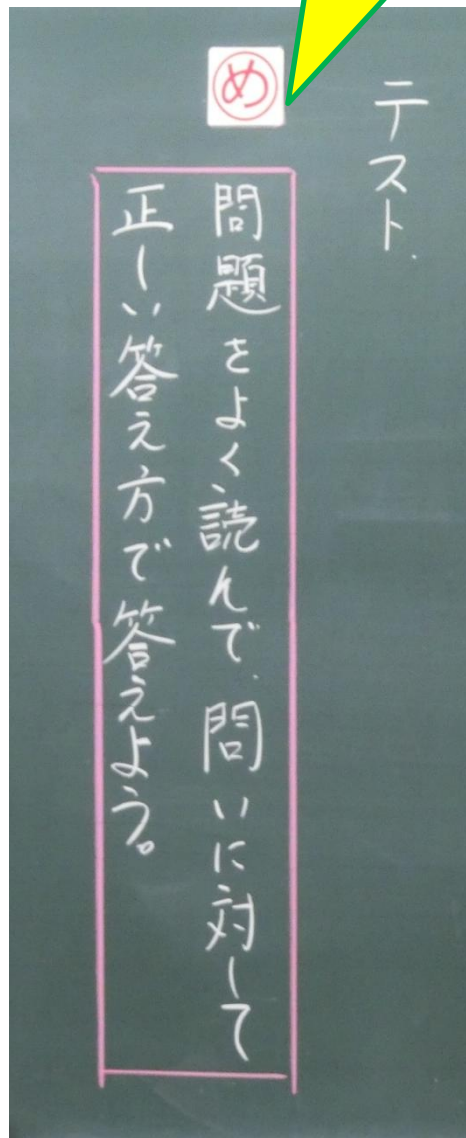 テスト.
め
問題をよく読んで、問いに対して
正しい答え方で答えよう。